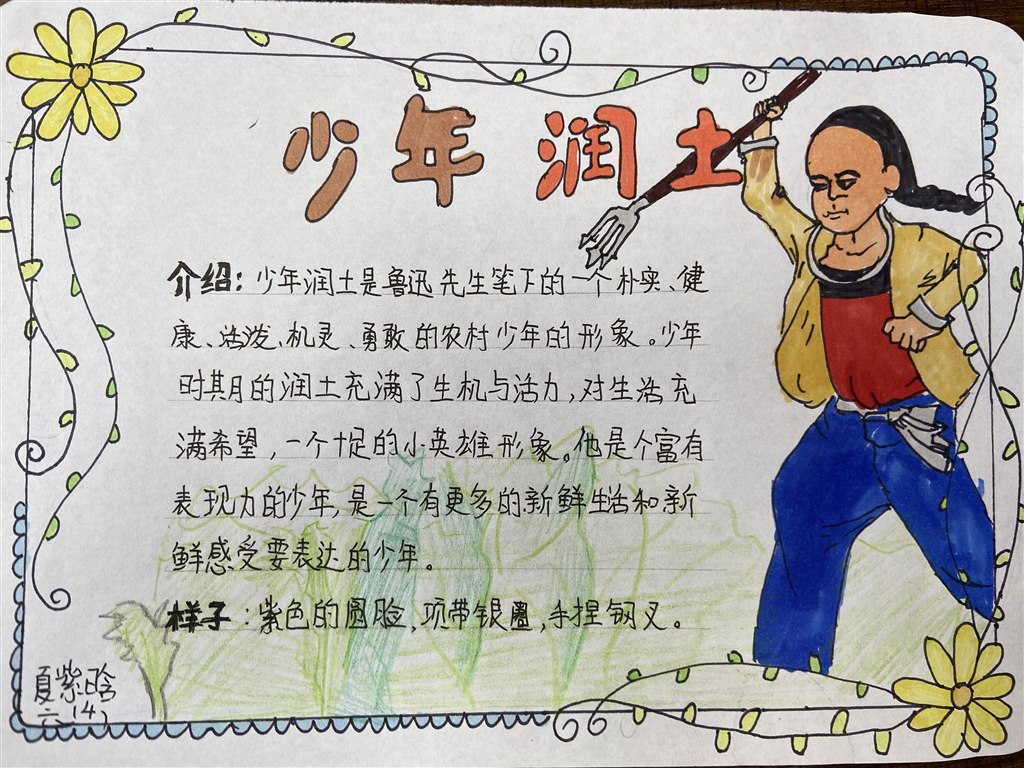 少年润土
介绍：少年润土是鲁迅先生笔下的一个朴实、健
康、活泼、机灵、勇敢的农村少年的形象。少年
时其月的润土充满了生机与活力，对生活充
满希望，一个十足的小英雄形象。他是个富有
表现力的少年，是一个有更多的新鲜生活和新
鲜感受要表达的少年。
样子：紫色的圆脸，项带银圈，手捏钢叉。
夏紫晗
六（4）